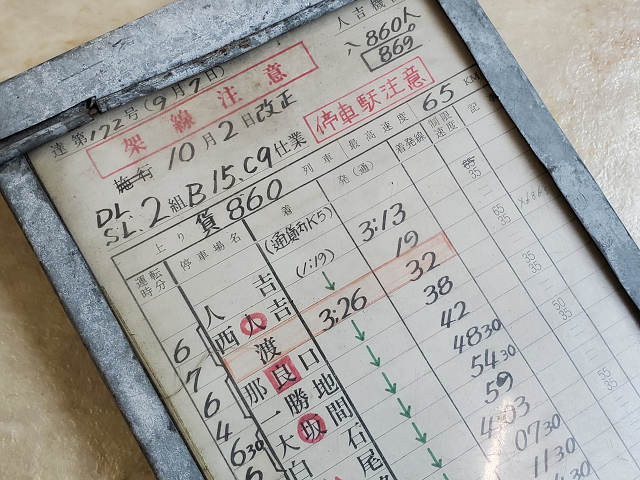 人吉機
入860人
869
達第172号(9月7日)
架線注意
施行 10月2日改正
停車駅注意
DL
SL 2組 B15.C9 仕業
上り 貨860 列車 最高速度 65 KM
運転時分 停車場名 着 発(通) 着発線 制限速度 記
(通貨丸K5)
人吉 (1:19) 3:13
6 西人吉 ↓ 19
7 渡 3:26 32
6 那良口 ↓ 38
4 一勝地 ↓ 42
6 30 大坂間 ↓ 48 30
6 白石 ↓ 54 30
尾 ↓ 59
↓ 4:03
07 30
11 30